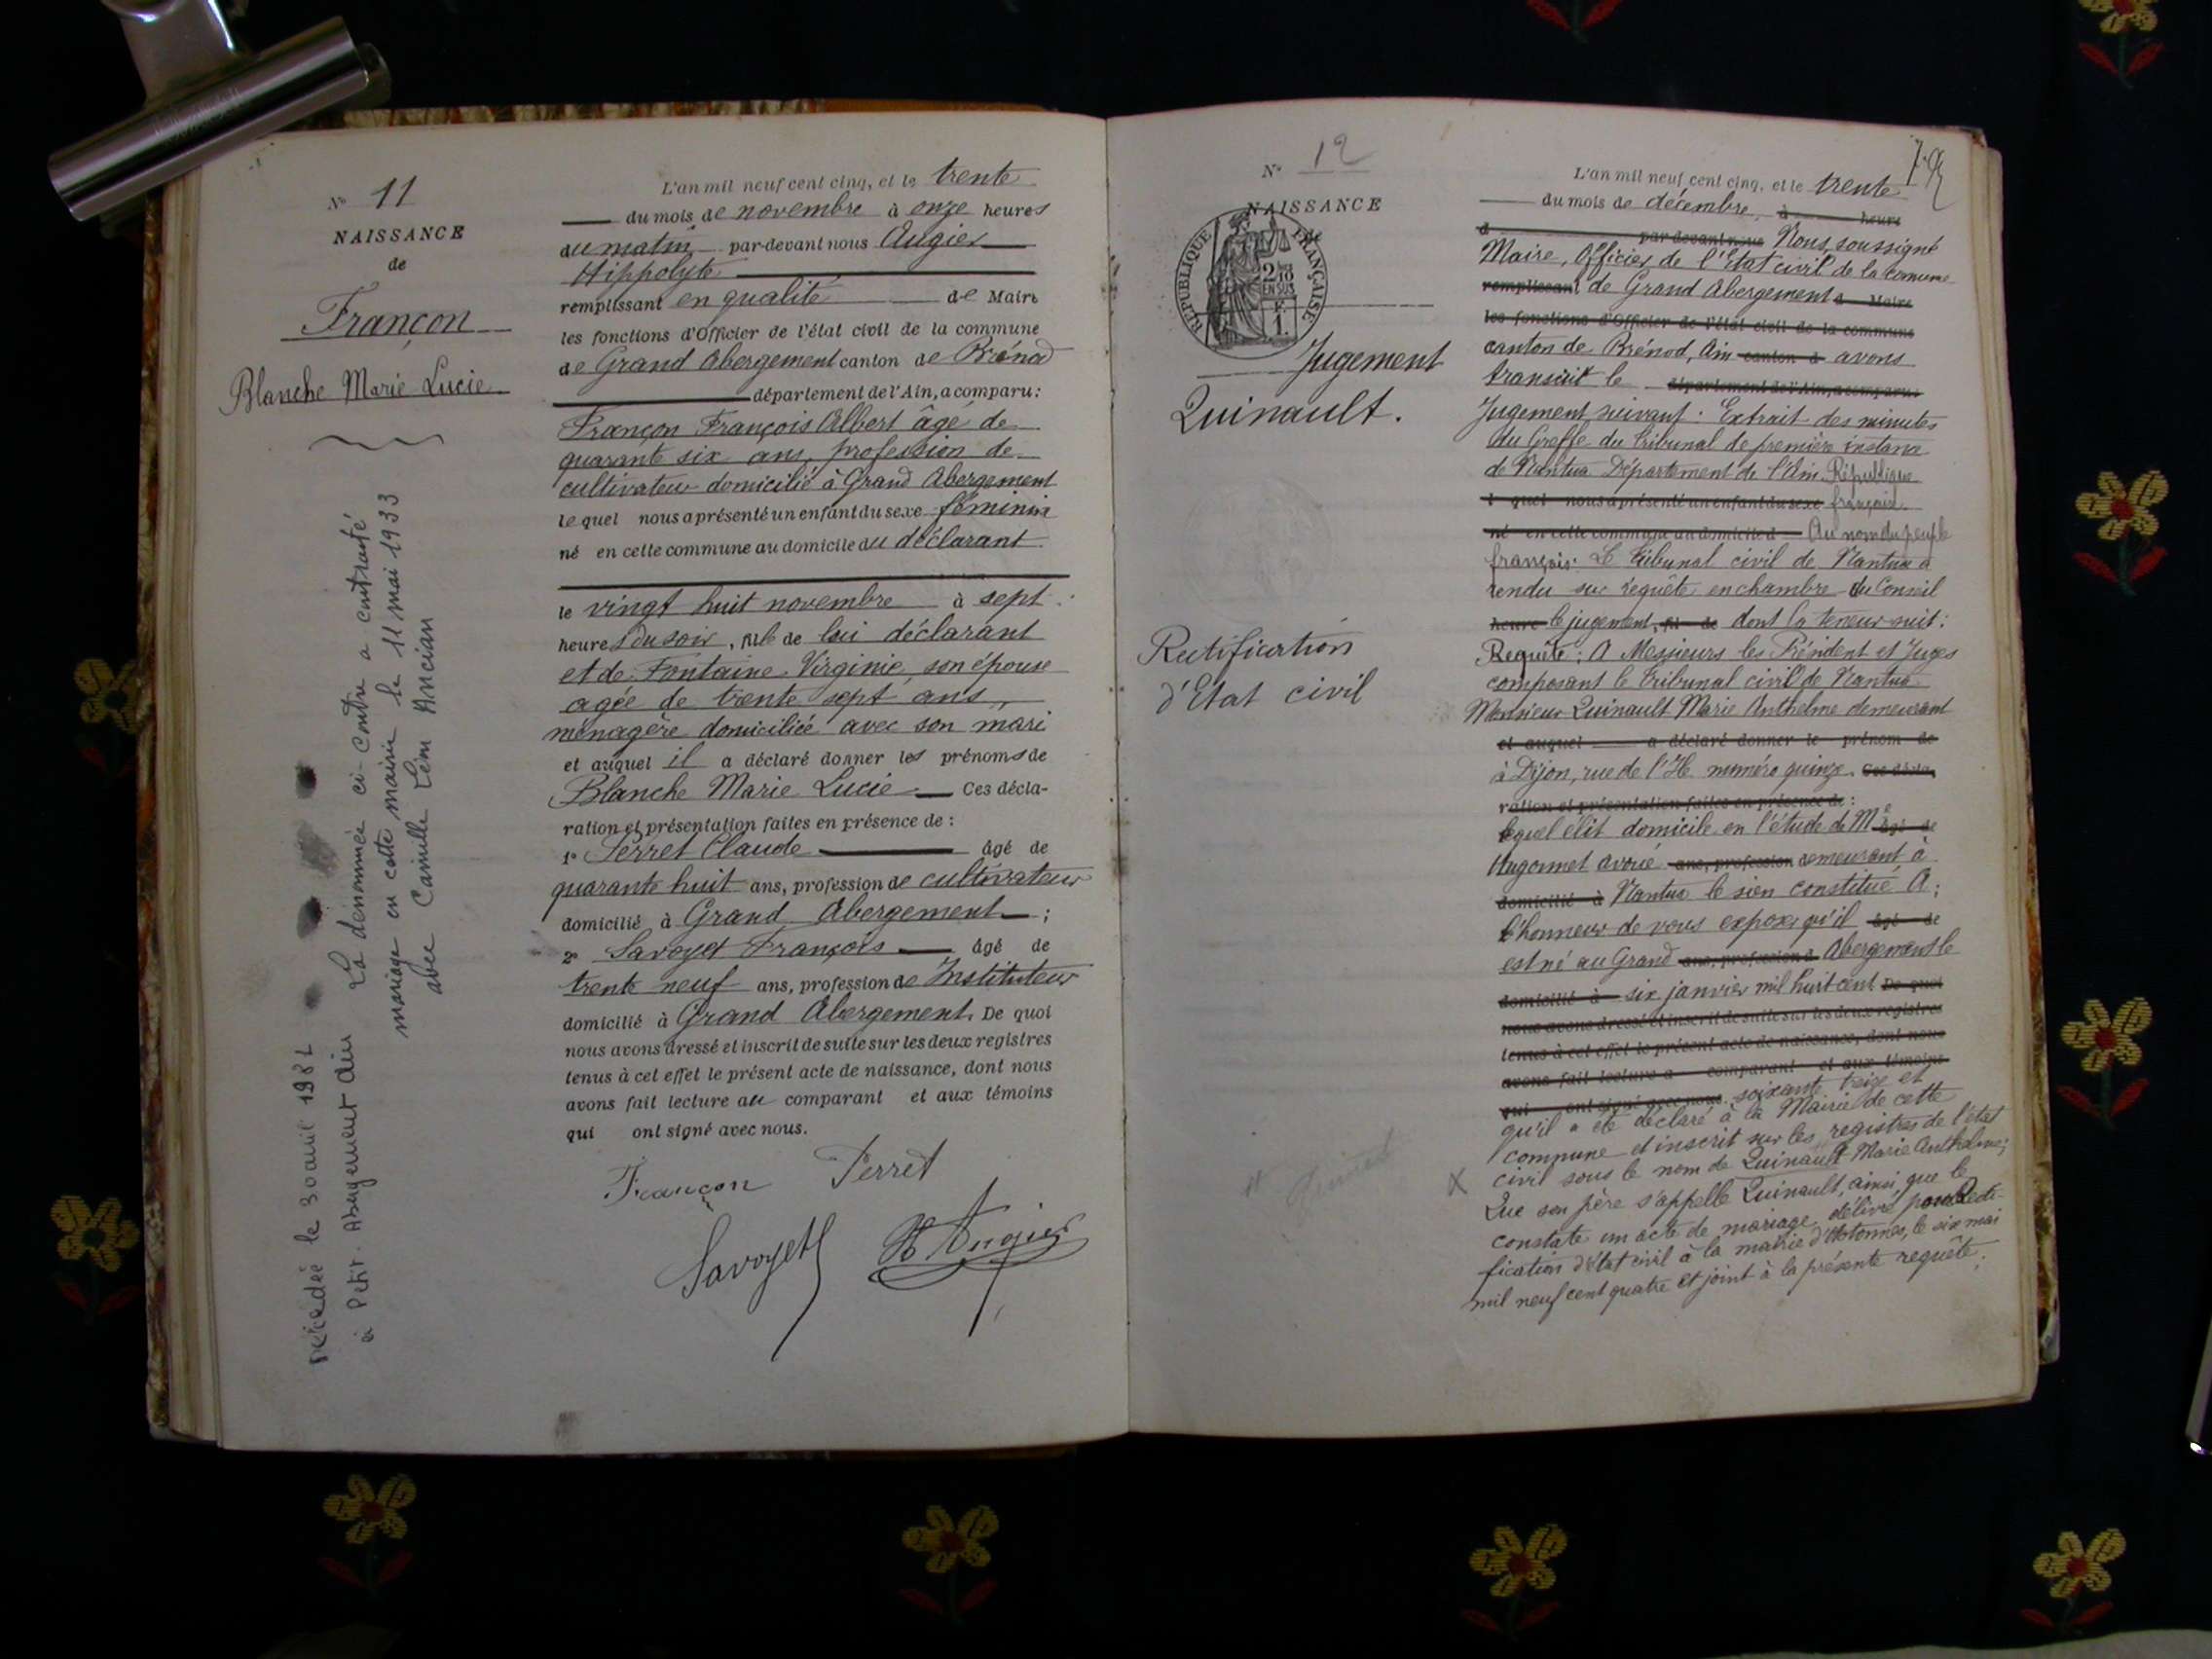 N° 11
NAISSANCE
de
Françon
Blanche Marie Lucie
La dénommée ci-contre a contracté
mariage en cette mairie le 11 mai 1933
avec Camille Léon Ancian
Décédée le 30 avril 198
à Petit Abergement Ain
L'an mil neuf cent cinq, et le trente
du mois de novembre à onze heures
du matin par-devant nous Augier
Hippolyte
remplissant en qualité de Maire
les fonctions d'Officier de l'état civil de la commune
de Grand Abergement canton de Brénod
département de l'Ain, a comparu:
Françon François Albert âgé de
quarante six ans, profession de
cultivateur domicilié à Grand Abergement
lequel nous a présenté un enfant du sexe féminin
né en cette commune au domicile du déclarant
le vingt huit novembre à sept
heures du soir, fille de lui déclarant
et de Fontaine Virginie, son épouse
agée de trente sept ans,
ménagère domiciliée avec son mari
et auquel il a déclaré donner les prénoms de
Blanche Marie Lucie Ces décla-
ration et présentation faites en présence de :
1° Perret Claude âgé de
quarante huit ans, profession de cultivateur
domicilié à Grand Abergement ;
2° Savoyet François âgé de
trente neuf ans, profession de Instituteur
domicilié à Grand Abergement. De quoi
nous avons dressé et inscrit de suite sur les deux registres
tenus à cet effet le présent acte de naissance, dont nous
avons fait lecture au comparant et aux témoins
qui ont signé avec nous.
Françon Perret
Savoyet H Augier
N° 12
NAISSANCE
RÉPUBLIQUE FRANÇAISE
2/10 EN SUS
F. 1.
Jugement
Quinault.
Rectification
d'Etat civil
L'an mil neuf cent cinq, et le trente
du mois de décembre, à heure
d par-devant nous Nous, soussigné
Maire, Officier de l'Etat civil de la comune
remplissant de Grand Abergement d Maire
les fonctions d'Officier de l'état civil de la commune
canton de Brénod, Ain canton d avons
transcrit le département de l'Ain, a comparu:
Jugement suivant : Extrait des minutes
du Greffe du Tribunal de première instance
de Nantua Département de l'Ain. République
l quel nous a présenté un enfant du sexe française.
né en cette commune au domicile d Au nom du peuple
français: Le tribunal civil de Nantua a
rendu sur requête en chambre du Conseil
heure le jugement, fil de dont la teneur suit:
Requête : A Messieurs les Président et Juges
composant le tribunal civil de Nantua
Monsieur Quinault Marie Anthelme demeurant
et auquel a déclaré donner le prénom de
à Dijon, rue de l'H numéro quinze. Ces décla-
ration et présentation faites en présence de :
lequel élit domicile en l'étude de Me âgé de
Hugonnet avoué ans, profession demeurant à
domicilié à Nantua le sien constitué A;
l'honneur de vous exposer qu'il âgé de
est né au Grand ans, profession d Abergement le
domicilié à six janvier mil huit cent De quoi
nous avons dressé et inscrit de suite sur les deux registres
tenus à cet effet le présent acte de naissance, dont nous
avons fait lecture a comparant et aux témoins
qui ont signé avec nous. soixante treize et
qu'il a été déclaré à la Mairie de cette
commune et inscrit sur les registres de l'état
X civil sous le nom de Quinault Marie Anthelme;
Que son père s'appelle Quinault, ainsi que le
constate un acte de mariage délivré pour Recti-
fication d'état civil à la mairie d'Hotonnes, le six mai
mil neuf cent quatre et joint à la présente requête;